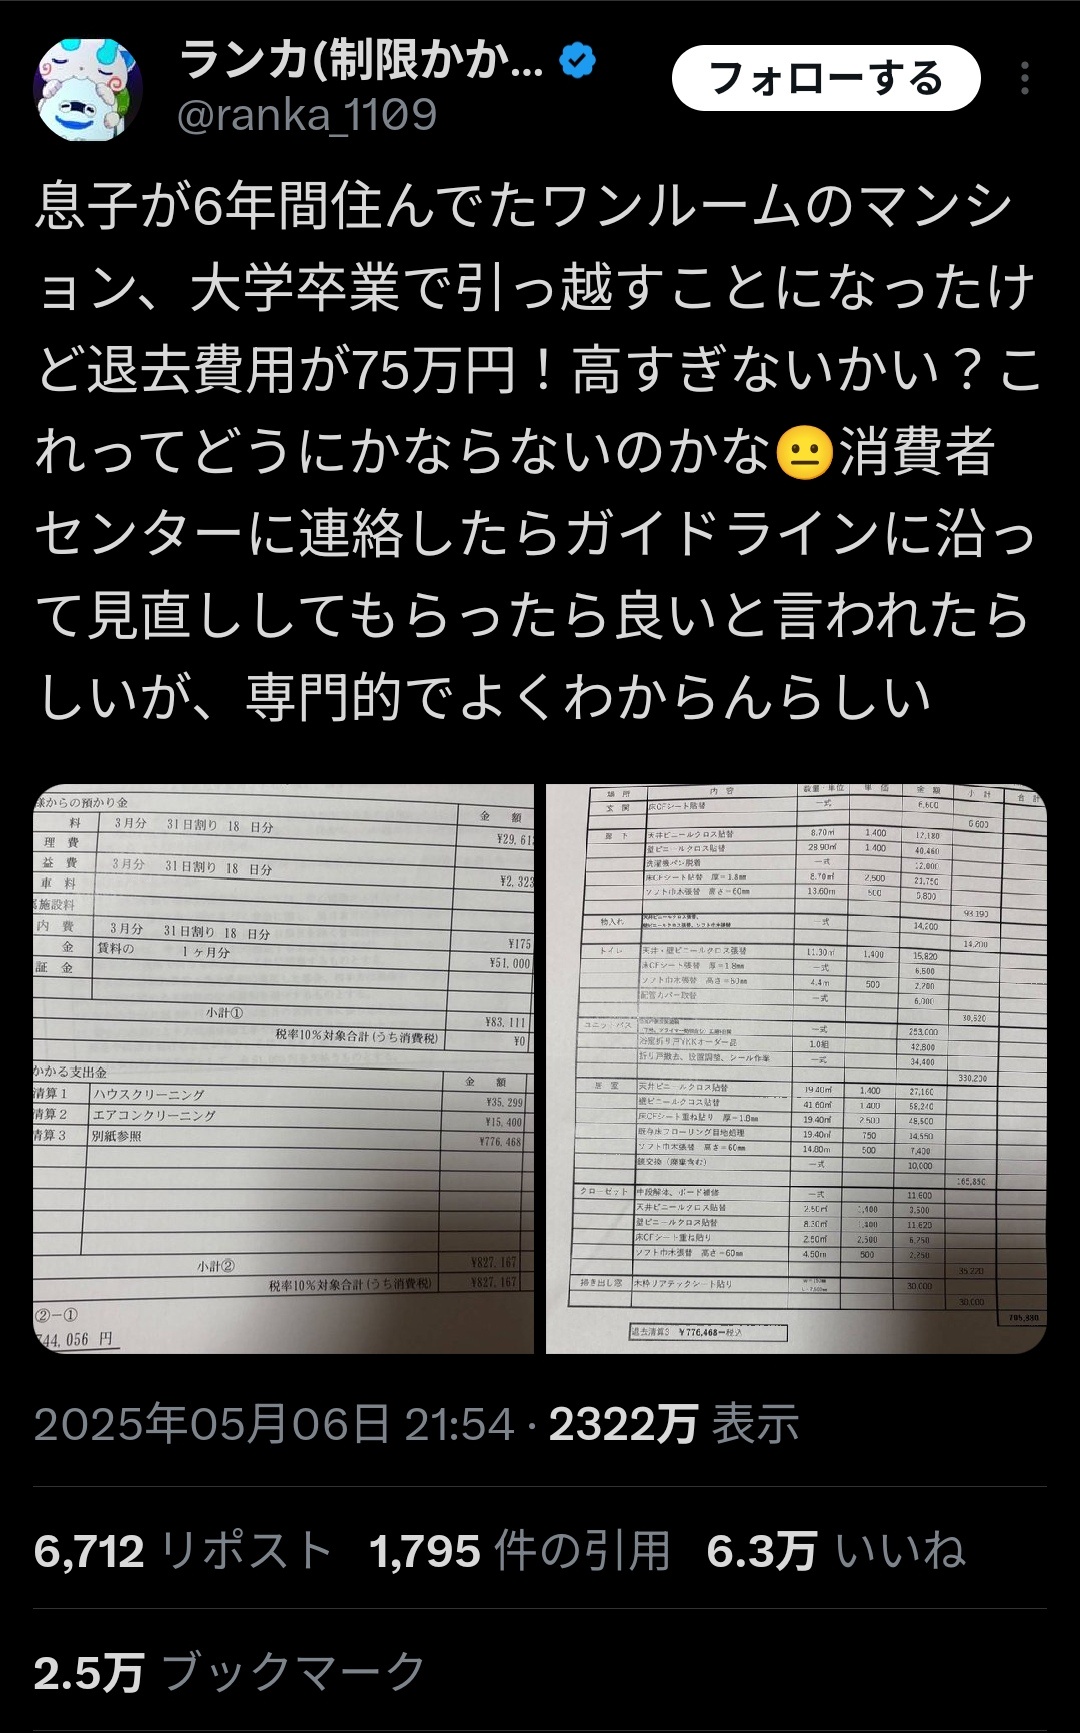 ランカ(制限かか...
フォローする
@ranka_1109
息子が6年間住んでたワンルームのマンシ
ョン、大学卒業で引っ越すことになったけ
ど退去費用が75万円！高すぎないかい？こ
れってどうにかならないのかな😐消費者
センターに連絡したらガイドラインに沿っ
て見直ししてもらったら良いと言われたら
しいが、専門的でよくわからんらしい
様からの預かり金
金 額
料 3月分 31日割り 18 日分 ¥29,61
理 費
益 費 3月分 31日割り 18 日分 ¥2,323
車 料
施設料
内 費 3月分 31日割り 18 日分 ¥175
金 賃料の 1ヶ月分 ¥51,000
証 金
小計① ¥83,111
税率10%対象合計(うち消費税) ¥0
かかる支出金 金 額
清算1 ハウスクリーニング ¥35,299
清算2 エアコンクリーニング ¥15,400
清算3 別紙参照 ¥776,468
小計② ¥827,167
税率10%対象合計(うち消費税) ¥827,167
②-①
744,056 円
場 所 内 容 数量・単位 単 価 金 額 小 計 合 計
玄 関 床CFシート貼替 一式 6,600
6,600
廊 下 天井ビニールクロス貼替 8.70㎡ 1,400 12,180
壁ビニールクロス貼替 28.90㎡ 1,400 40,460
洗濯機パン脱着 一式 12,000
床CFシート貼替 厚=1.8mm 8.70㎡ 2,500 21,750
ソフト巾木張替 高さ=60mm 13.60m 500 6,800
93,190
物入れ 一式 14,200
14,200
トイレ 天井・壁ビニールクロス張替 11.30㎡ 1,400 15,820
床CFシート張替 厚=1.8mm 一式 6,500
ソフト巾木張替 高さ=60mm 4.4m 500 2,200
配管カバー取替 一式 6,000
30,520
ユニットバス 一式 253,000
浴室折り戸YKKオーダー品 1.0組 42,800
折り戸撤去、設置調整、シール作業 一式 34,400
330,200
居 室 天井ビニールクロス貼替 19.40㎡ 1,400 27,160
壁ビニールクロス貼替 41.60㎡ 1,400 58,240
床CFシート重ね貼り 厚=1.8mm 19.40㎡ 2,500 48,500
既存床フローリング目地処理 19.40㎡ 750 14,550
ソフト巾木張替 高さ=60mm 14.80m 500 7,400
鏡交換（廃棄含む） 一式 10,000
165,850
クローゼット 中段解体、ボード補修 一式 11,600
天井ビニールクロス貼替 2.50㎡ 1,400 3,500
壁ビニールクロス貼替 8.30㎡ 1,400 11,620
床CFシート重ね貼り 2,500 6,250
ソフト巾木張替 高さ=60mm 4.50m 500 2,250
35,220
掃き出し窓 木枠リアテックシート貼り 30,000
30,000
705,880
退去清算3 ¥776,468ー税込
2025年05月06日 21:54 · 2322万 表示
6,712 リポスト 1,795 件の引用 6.3万 いいね
2.5万 ブックマーク